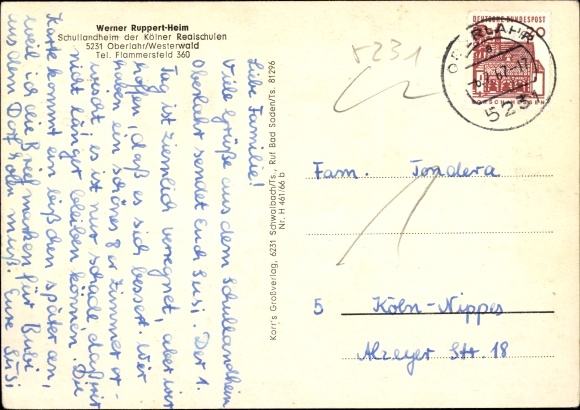 Werner Ruppert-Heim
Schullandheim der Kölner Realschulen
5231 Oberlahr/Westerwald
Tel. Flammersfeld 360
Liebe Familie!
Viele Grüße aus dem Schullandheim
Oberlahr sendet Euch Susi. Der 1.
Tag ist ziemlich verregnet, aber wir
hoffen, daß es sich bessert. Wir
haben ein schönes 8 er Zimmer er-
wischt, es ist nur schade, daß wir
nicht länger bleiben können. Die
Karte kommt ein bißchen später an,
weil ich die Briefmarken für Bubi
aus dem Dorf holen muß. Eure Susi
Karr's Großverlag, 6231 Schwalbach/Ts., Ruf Bad Soden/Ts. 81296
Nr. H 461/66 b
5231
DEUTSCHE BUNDESPOST
OBERLAHR
5231
Fam. Tondera
5 Köln-Nippes
Alzeyer Str. 18